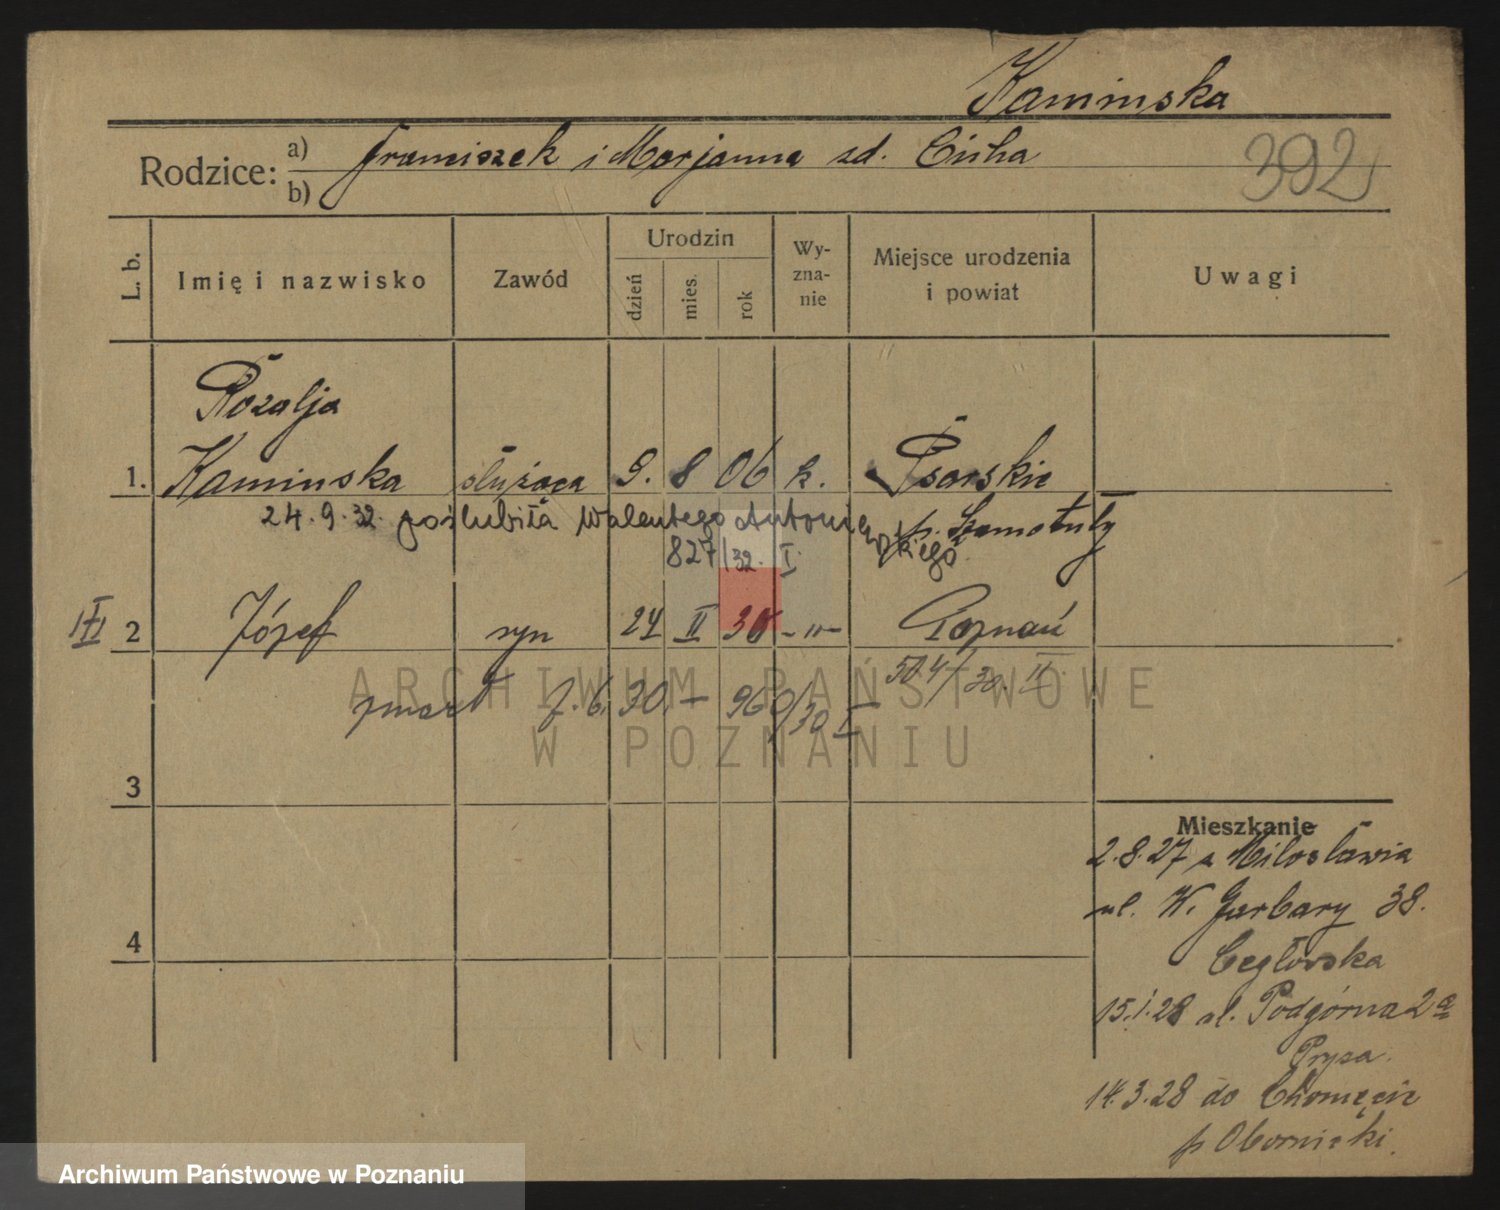 Kaminska
Rodzice: a) Franciszek i Marjanna zd. Cicha
b)
392
L. b.
Imię i nazwisko
Zawód
Urodzin
dzień
mies.
rok
Wy-
zna-
nie
Miejsce urodzenia
i powiat
Uwagi
Rozalja
1. Kaminska służąca 9. 8 06 k. Psarskie
24.9.32 poślubiła Walentego
p. Szamotuły
827/32. I.
2 Józef syn 24 II 30 -"- Poznań
504/30. II.
zmarł 7.6.30. - 960/30 I
3
4
Mieszkanie
2.8.27 z Miłosławia
ul. W. Garbary 38.
Cegłowska
15.1.28 ul. Podgórna 2a
14.3.28 do Chomęcic
p Obornicki.
ARCHIWUM PAŃSTWOWE
W POZNANIU
Archiwum Państwowe w Poznaniu